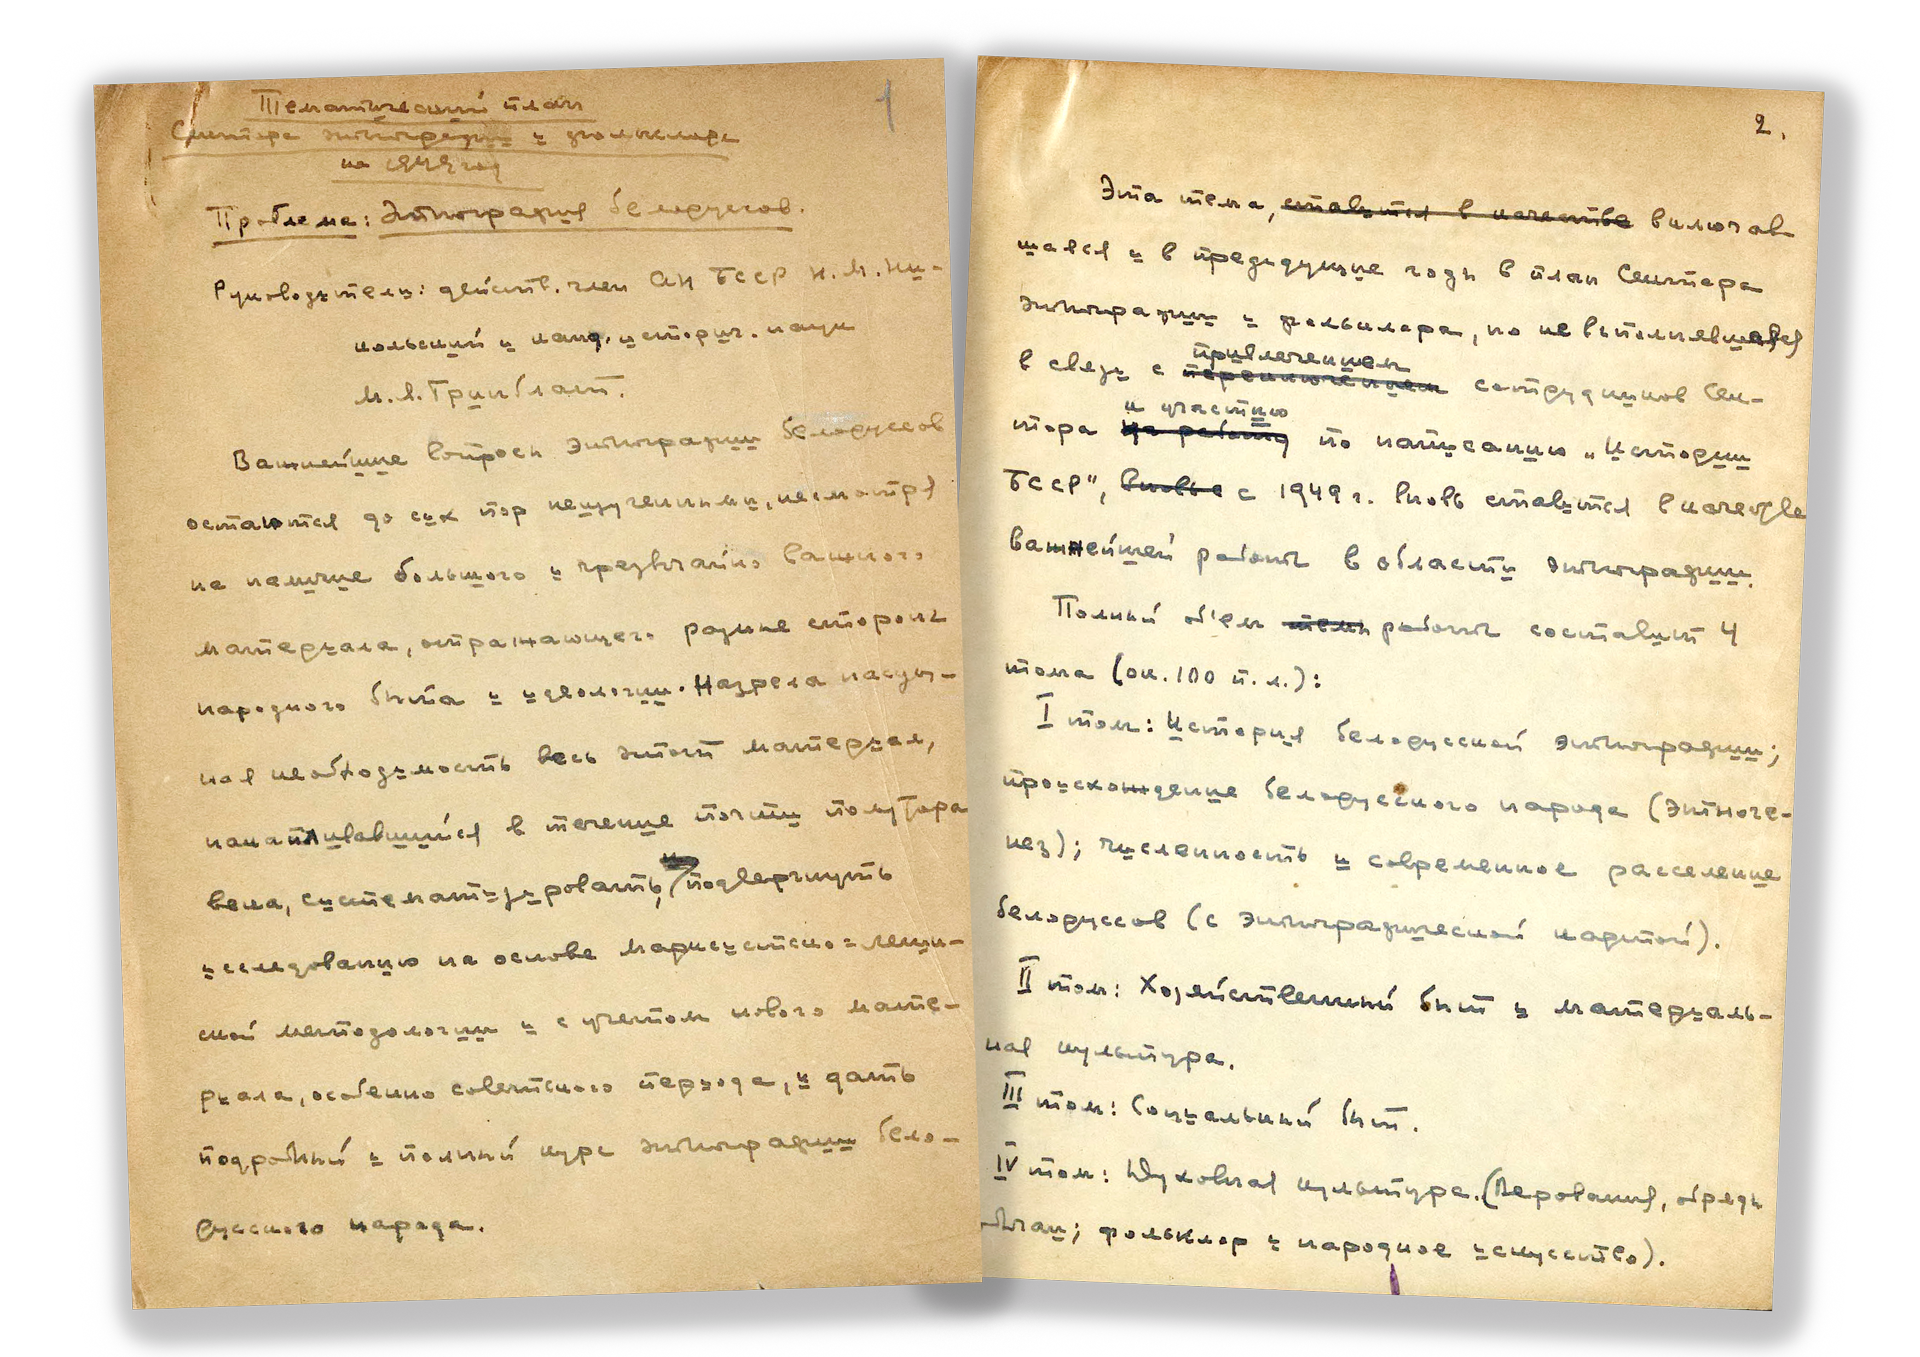 1
Тематический план
Сектора этнографии и фольклора
на 1949 год
Проблема: Этнография белоруссов.
Руководители: действ. член АН БССР Н.М. Ни-
кольский и канд. историч. наук
М.Я. Гринблат.
Важнейшие вопросы этнографии белоруссов
остаются до сих пор неизученными, несмотря
на наличие большого и чрезвычайно важного
материала, отражающего разные стороны
народного быта и идеологии. Назрела насущ-
ная необходимость весь этот материал,
накапливавшийся в течение почти полутора
века, систематизировать, подвергнуть
исследованию на основе марксистско-ленин-
ской методологии и с учетом нового мате-
риала, особенно советского периода, и дать
подробный и полный курс этнографии бело-
русского народа.
2.
Эта тема, ставится в качестве включав
шаяся и в предыдущие годы в план Сектора
этнографии и фольклора, но не выполнявшаяся
в связи с привлечением
переключением сотрудников Сек-
к участию
тора на работу по написанию „Истории
БССР", вновь с 1949 г. вновь ставится в качестве
важнейшей работы в области этнографии.
Полный об'ем темы работы составит 4
тома (ок. 100 п.л.):
I том: История белорусской этнографии;
происхождение белорусского народа (этноге-
нез); численность и современное расселение
белоруссов (с этнографической картой).
II том: Хозяйственный быт и материаль-
ная культура.
III том: Социальный быт.
IV том: Духовная культура. (Верования, обряды
обычаи; фольклор и народное искусство).